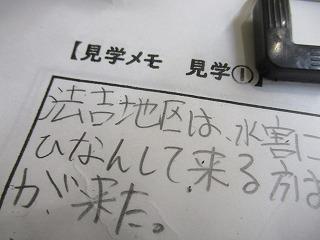 【見学メモ 見学①】
法吉地区は、水害に
ひなんして来る方は
が来た。